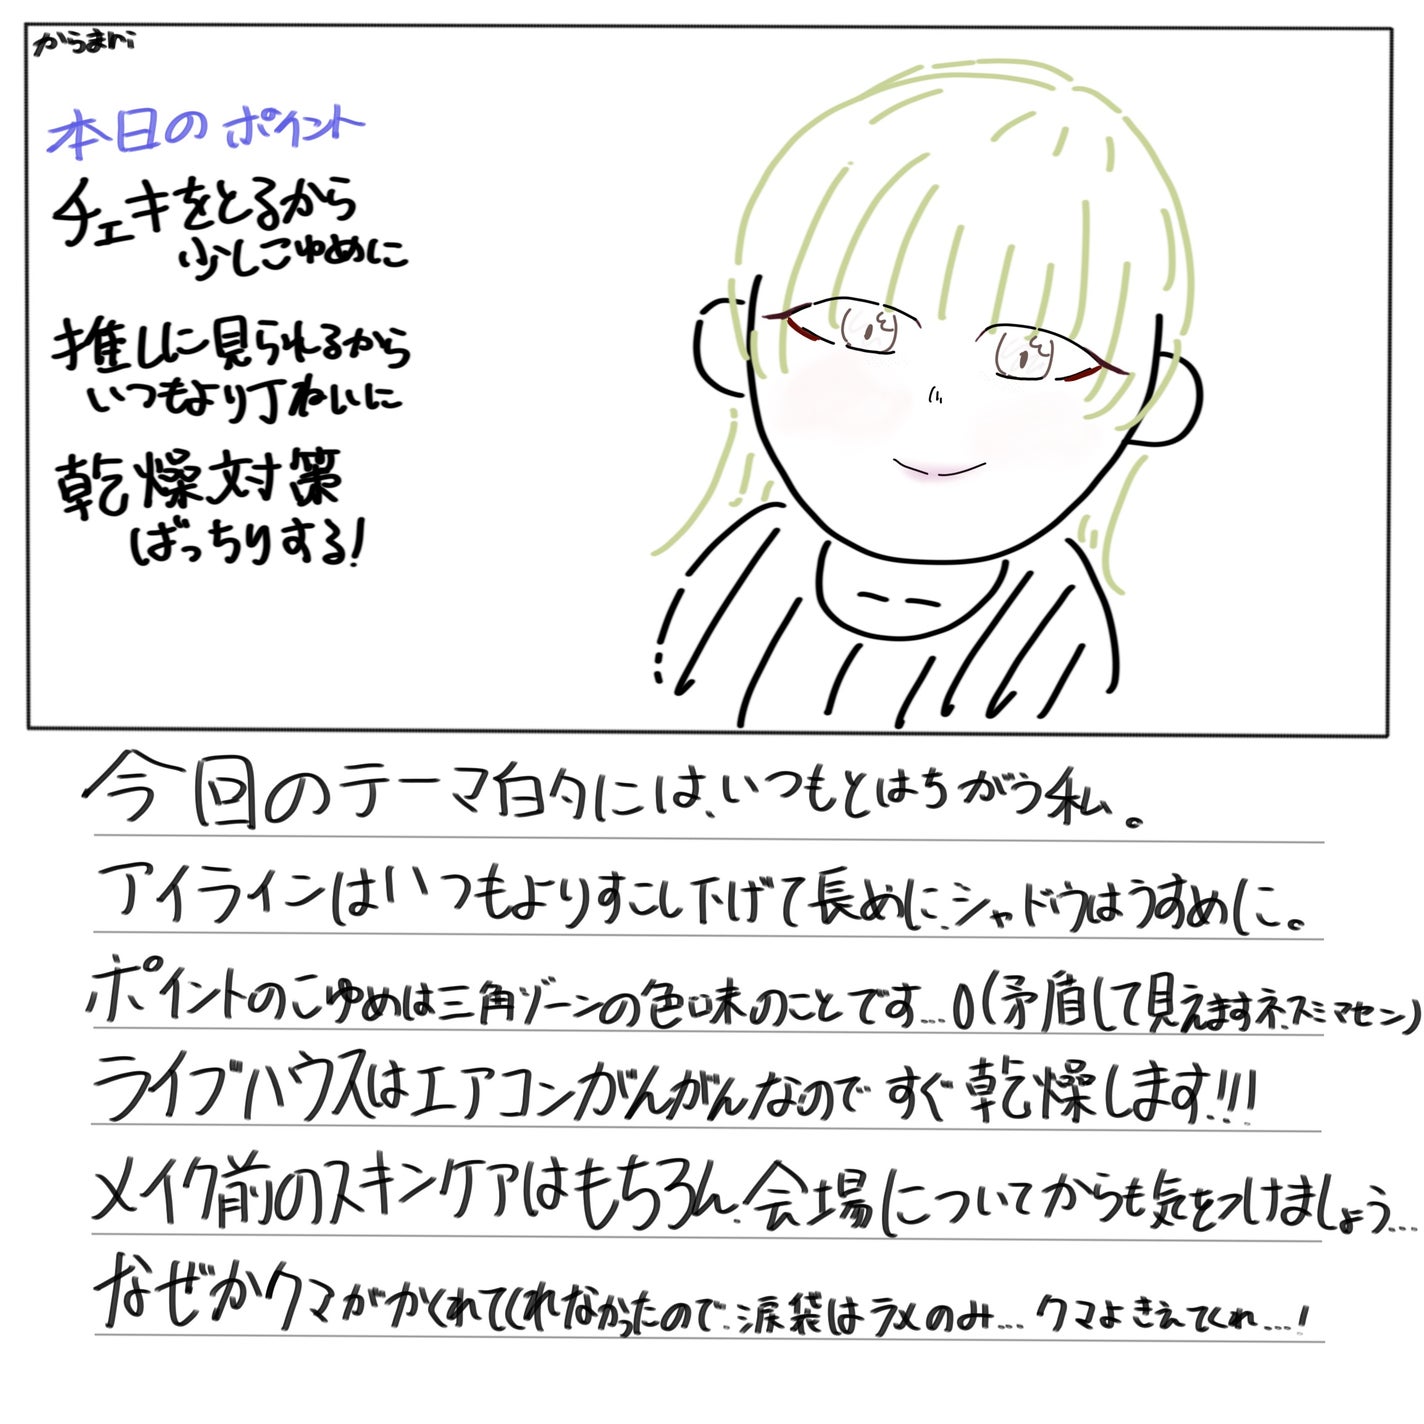 からまri
本日のポイント
チェキをとるから
少しこゆめに
推しに見られるから
いつもより丁ねいに
乾燥対策
ばっちりする!
今回のテーマ的には、いつもとはちがう私。
アイラインはいつもよりすこし下げて長めに、シャドウはうすめに。
ポイントのこゆめは三角ゾーンの色味のことです…0(矛盾して見えますネ、スミマセン)
ライブハウスはエアコンがんがんなので すぐ乾燥します!!!
メイク前のスキンケアはもちろん、会場についてからも気をつけましょう…
なぜかクマがかくれてくれなかったので、涙袋はラメのみ… クマよきえてくれ…!